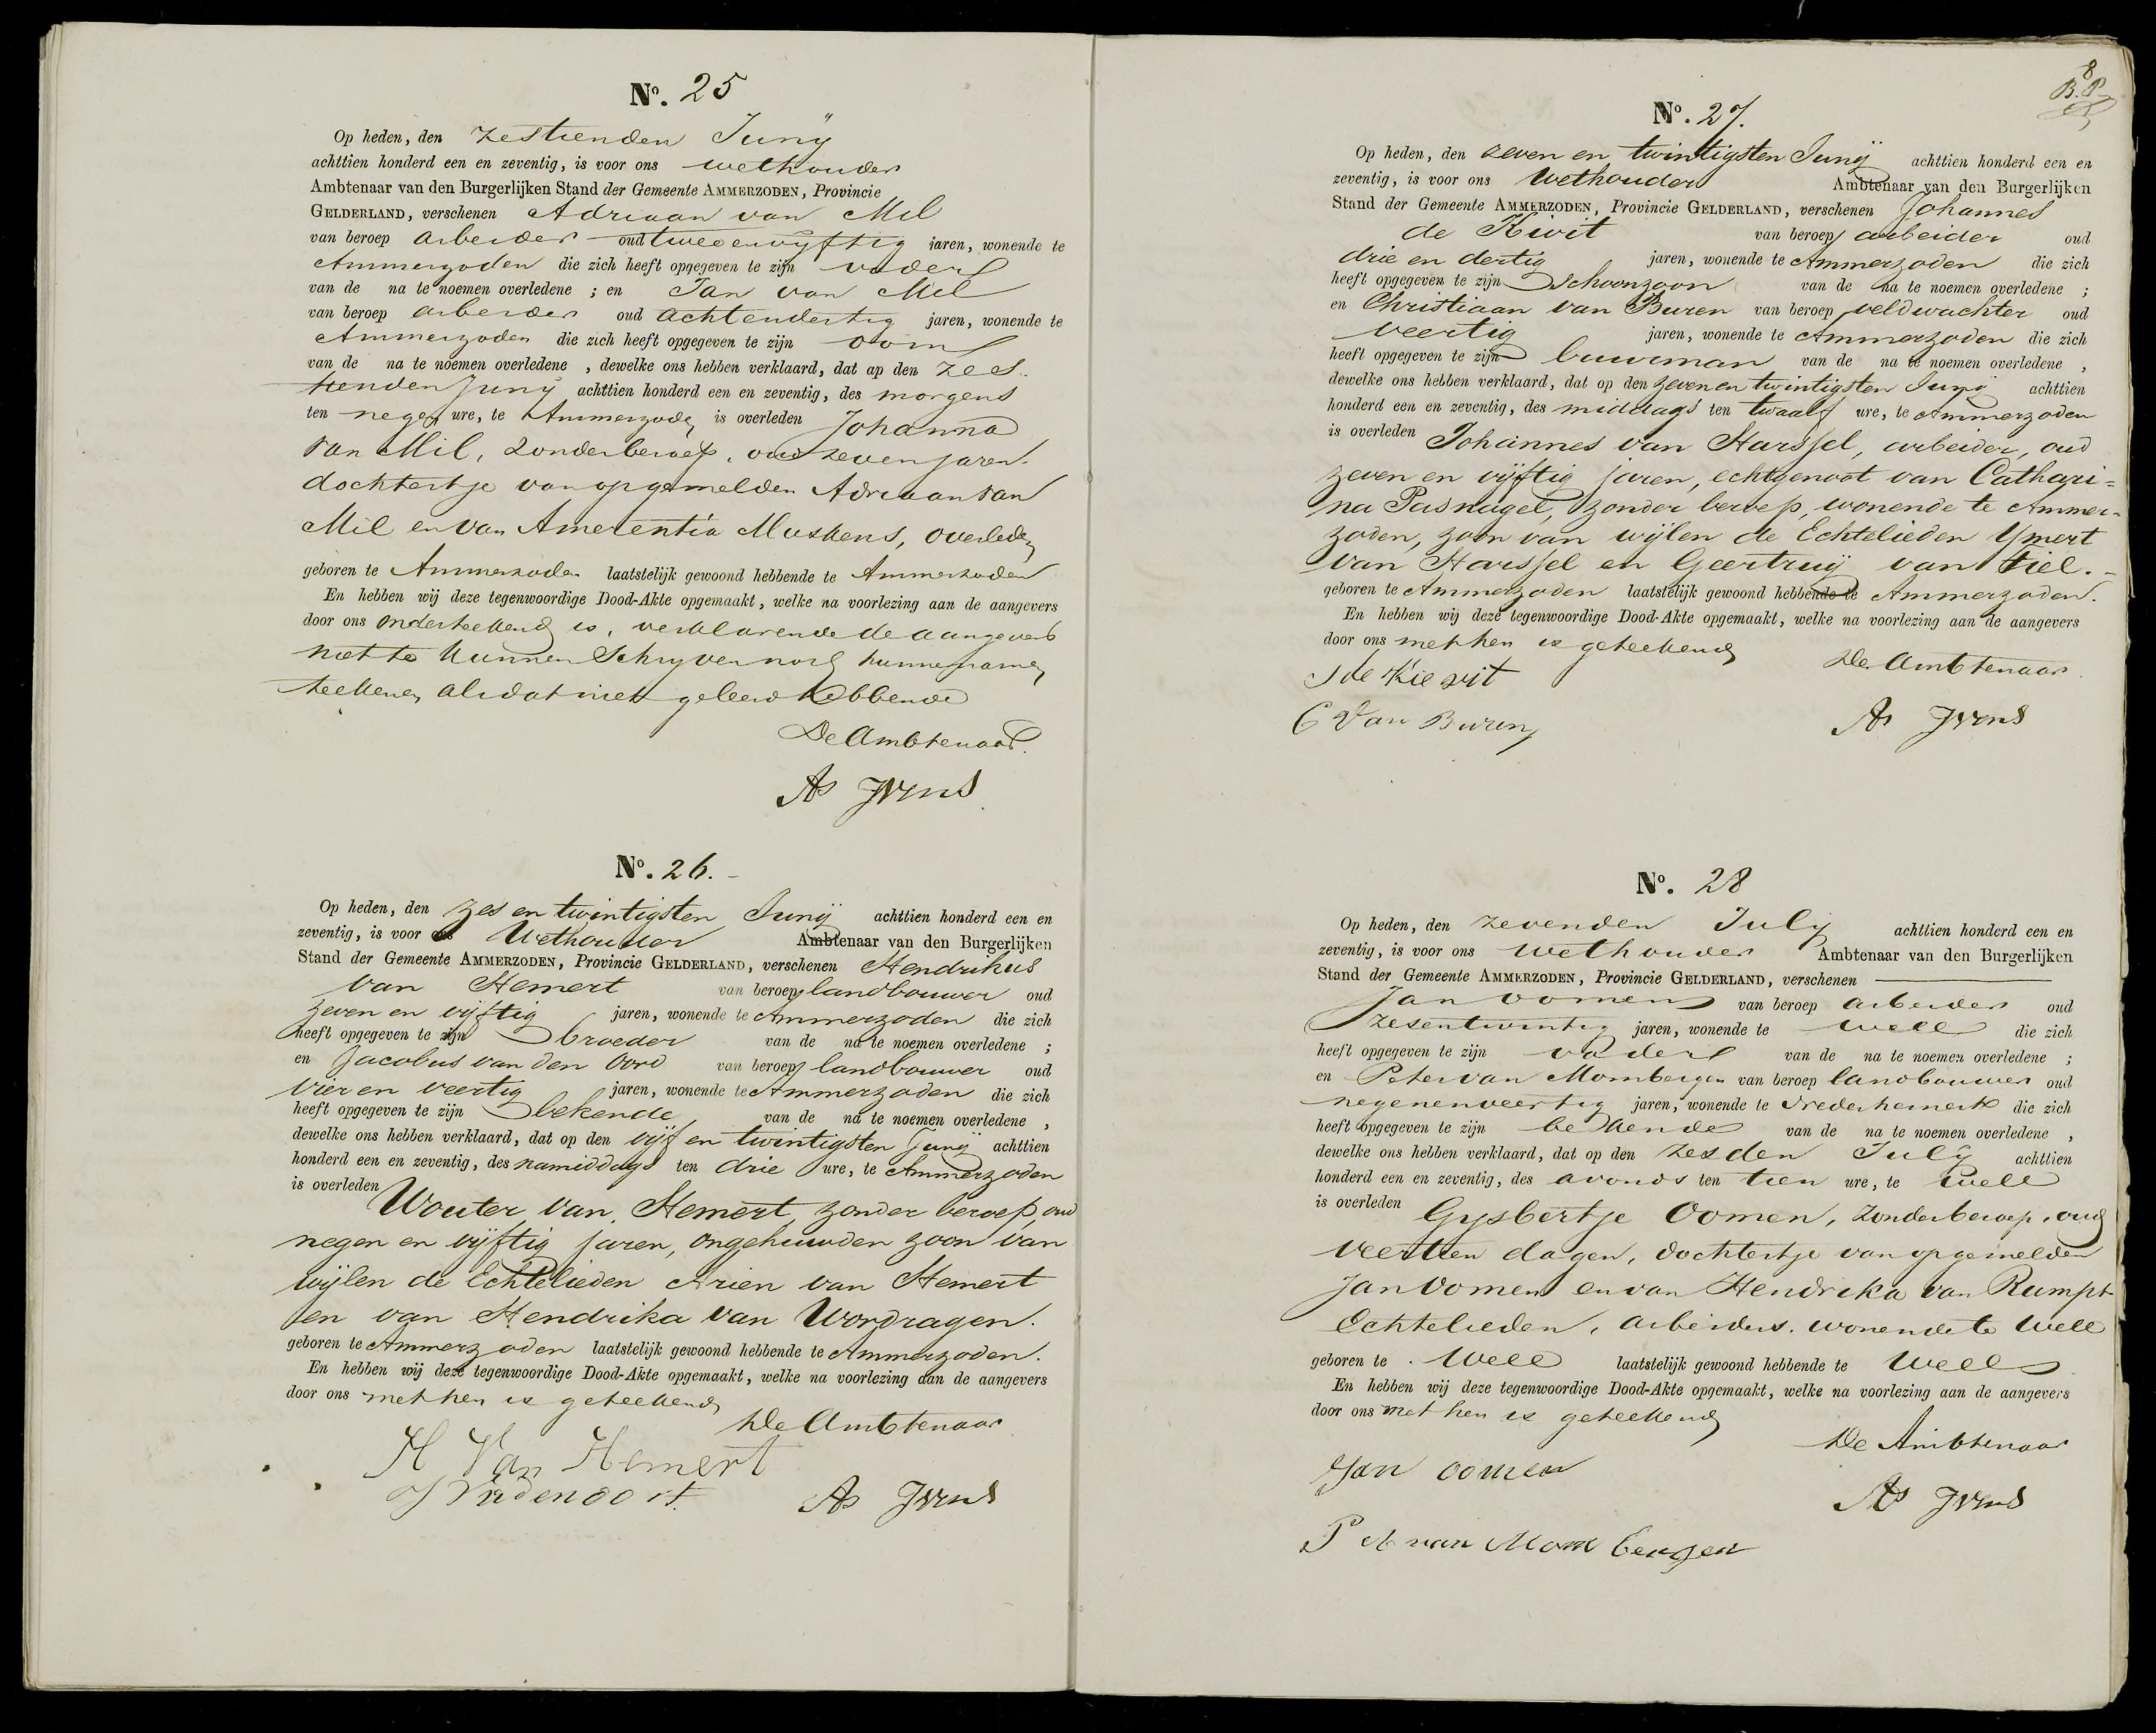 No. 25
Op heden, den zestienden Junij
achttien honderd een en zeventig, is voor ons wethouder
Ambtenaar van den Burgerlijken Stand der Gemeente AMMERZODEN, Provincie
GELDERLAND, verschenen Adriaan van Mil
van beroep arbeider oud tweeenvyftig jaren, wonende te
Ammerzoden die zich heeft opgegeven te zijn vader
van de na te noemen overledene ; en Jan van Mil
van beroep arbeider oud achtendertig jaren, wonende te
Ammerzoden die zich heeft opgegeven te zijn oom
van de na te noemen overledene , dewelke ons hebben verklaard, dat op den zes
tienden Junij achttien honderd een en zeventig, des morgens
ten negen ure, te Ammerzoden is overleden Johanna
van Mil, zonder beroep, oud zeven jaren.
dochtertje van opgemelden Adriaan van
Mil en van Amerentia Muskens, overleden
geboren te Ammerzoden laatstelijk gewoond hebbende te Ammerzoden
En hebben wij deze tegenwoordige Dood-Akte opgemaakt, welke na voorlezing aan de aangevers
door ons onderteekend is, verklarende de aangevers
niet te kunnen schryven noch hunne namen
teekenen als dat niet geleerd hebbende
De Ambtenaar.
As Jvens
No. 26.-
Op heden, den zes en twintigsten Junij achttien honderd een en
zeventig, is voor ons Wethouder Ambtenaar van den Burgerlijken
Stand der Gemeente AMMERZODEN, Provincie GELDERLAND, verschenen Hendrikus
van Hemert van beroep landbouwer oud
zeven en vijftig jaren, wonende te Ammerzoden die zich
heeft opgegeven te zijn broeder van de na te noemen overledene ;
en Jacobus van den Oord van beroep landbouwer oud
vier en veertig jaren, wonende te Ammerzoden die zich
heeft opgegeven te zijn bekende van de na te noemen overledene ,
dewelke ons hebben verklaard, dat op den vijf en twintigsten Junij achttien
honderd een en zeventig, des namiddags ten drie ure, te Ammerzoden
is overleden Wouter van Hemert, zonder beroep, oud
negen en vijftig jaren, ongehuwden zoon van
wijlen de Echtelieden Arien van Hemert
en van Hendrika van Wordragen.
geboren te Ammerzoden laatstelijk gewoond hebbende te Ammerzoden.
En hebben wij deze tegenwoordige Dood-Akte opgemaakt, welke na voorlezing aan de aangevers
door ons met hen is geteekend
De Ambtenaar
H Van Hemert
As Jvens
8
B.P.
No. 27.
Op heden, den zeven en twintigsten Junij achttien honderd een en
zeventig, is voor ons Wethouder Ambtenaar van den Burgerlijken
Stand der Gemeente AMMERZODEN, Provincie GELDERLAND, verschenen Johannes
de Kivit van beroep arbeider oud
drie en dertig jaren, wonende te Ammerzoden die zich
heeft opgegeven te zijn Schoonzoon van de na te noemen overledene ;
en Christiaan van Buren van beroep veldwachter oud
veertig jaren, wonende te Ammerzoden die zich
heeft opgegeven te zijn buurman van de na te noemen overledene ,
dewelke ons hebben verklaard, dat op den zeven en twintigsten Junij achttien
honderd een en zeventig, des middags ten twaalf ure, te Ammerzoden
is overleden Johannes van Harssel, arbeider, oud
zeven en vijftig jaren, echtgenoot van Cathari=
na Pasnagel, zonder beroep, wonende te Ammer=
zoden, zoon van wijlen de Echtelieden Ymert
van Harssel en Geertruij van Tiel.-
geboren te Ammerzoden laatstelijk gewoond hebbende te Ammerzoden.
En hebben wij deze tegenwoordige Dood-Akte opgemaakt, welke na voorlezing aan de aangevers
door ons met hen is geteekend
De Ambtenaar.
J de Kievit
C Van Buren
As Jvens
No. 28
Op heden, den zevenden July achttien honderd een en
zeventig, is voor ons wethouder Ambtenaar van den Burgerlijken
Stand der Gemeente AMMERZODEN, Provincie GELDERLAND, verschenen
Jan Oomen van beroep arbeider oud
zesentwintig jaren, wonende te Well die zich
heeft opgegeven te zijn vader van de na te noemen overledene ;
en Peter van Mombergen van beroep landbouwer oud
negenenveertig jaren, wonende te Nederhemert die zich
heeft opgegeven te zijn bekende van de na te noemen overledene ,
dewelke ons hebben verklaard, dat op den zesden July achttien
honderd een en zeventig, des avonds ten tien ure, te Well
is overleden Gysbertje Oomen, zonder beroep, oud
veertien dagen, dochtertje van opgemelden
Jan Oomen en van Hendrika van Rumpt
Echtelieden, arbeiders, wonende te Well
geboren te Well laatstelijk gewoond hebbende te Well
En hebben wij deze tegenwoordige Dood-Akte opgemaakt, welke na voorlezing aan de aangevers
door ons met hen is geteekend
De Ambtenaar
Jan oomen
As Jvens
P A van Mombergen